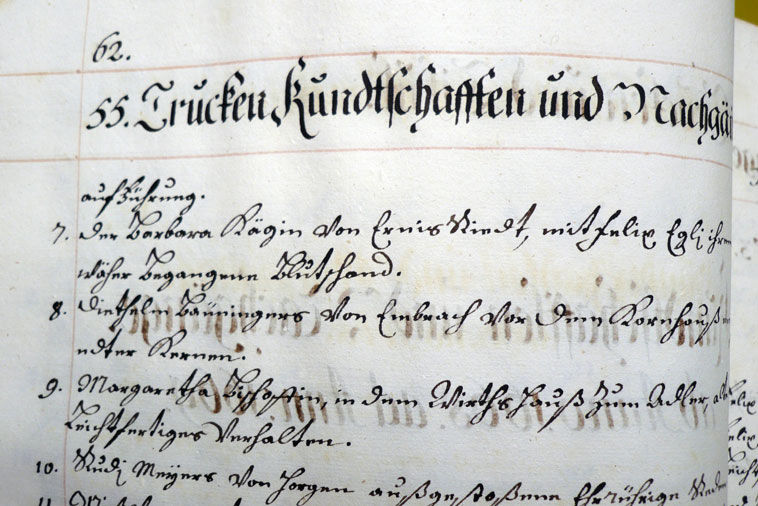 62.
55. Trucken Kundtschafften und Nachgä
auffführung.
7. der Barbara Kägin von Ernis Riedt, mit felix Egli ihrem
wäher begangene Blutschand.
8. Diethelm Bäningers von Embrach vor dem Kornhauß
Kernen.
9. Margaretha Bischoffin, in dem Wirthshauß zum Adler,
Leichtfertiges Verhalten.
10. Rudj Meyers von Horgen außgestoßene Ehrrührige Reden
11.